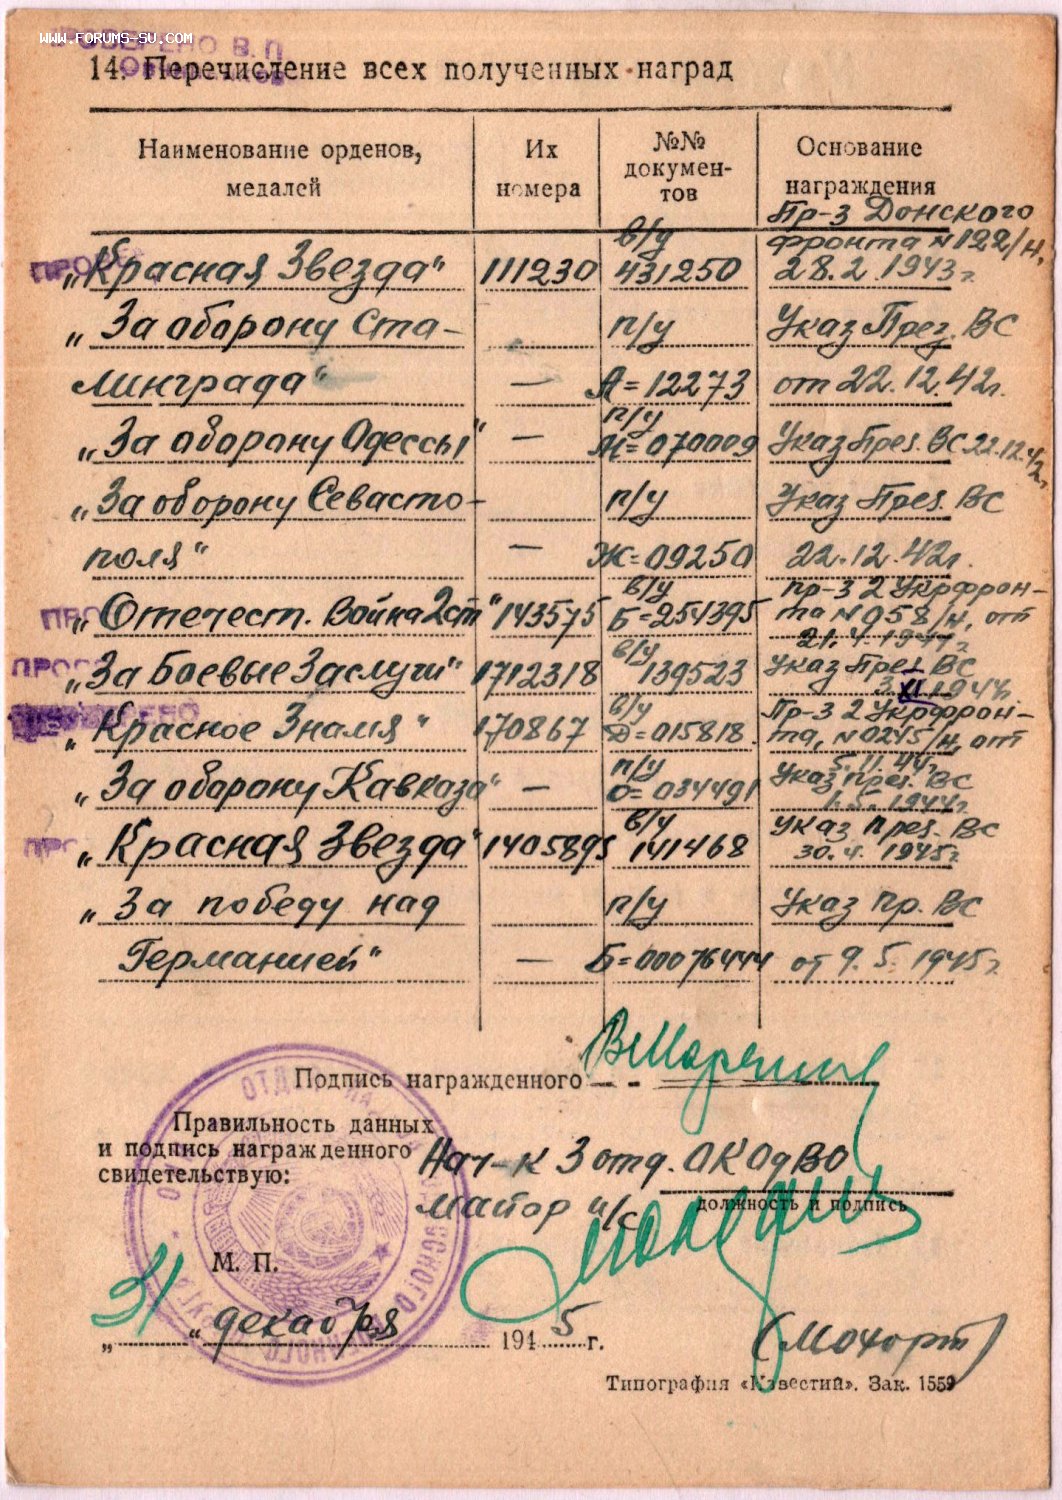 www.forums-su.com
ПРОВЕРЕНО В.П.
14. Перечисление всех полученных наград
Наименование орденов, медалей | Их номера | №№ докумен-тов | Основание награждения
Пр-з Донского
в/у фронта №122/н,
„Красная Звезда" 111230 431250 28.2.1943г.
„За оборону Ста- п/у Указ През. ВС
линграда" — А=12273 от 22.12.42г.
п/у
„За оборону Одессы" — М=070009 Указ През. ВС 22.12.42г.
„За оборону Севасто- п/у Указ През. ВС
поля" — Ж=09250 22.12.42г.
в/у пр-з 2 Укрфрон-
„Отечест. война 2 ст" 143575 Б=254395 та №058/н, от
21.4.1944г.
в/у Указ През. ВС
„За Боевые Заслуги" 1712318 139523 3.XI.1944г.
в/у Пр-з 2 Укрфрон-
„Красное Знамя" 170867 Д=015818 та, №0245/н, от
5.11.44г.
п/у Указ през. ВС
„За оборону Кавказа" — О=034491 1.5.1944г.
в/у Указ през. ВС
„Красная Звезда" 1405895 141468 30.4.1945г.
„За победу над п/у Указ пр. ВС
Германией" — Б=00076444 от 9.5.1945г.
Подпись награжденного
Правильность данных
и подпись награжденного
свидетельствую:
Нач-к 3 отд. ОК ОдВО
майор и/с
должность и подпись
М. П.
„31" декабря 1945 г.
(Мохорт)
Типография «Известий». Зак. 1559